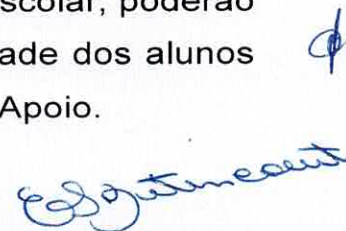 scolar, poderão
ade dos alunos
Apoio.